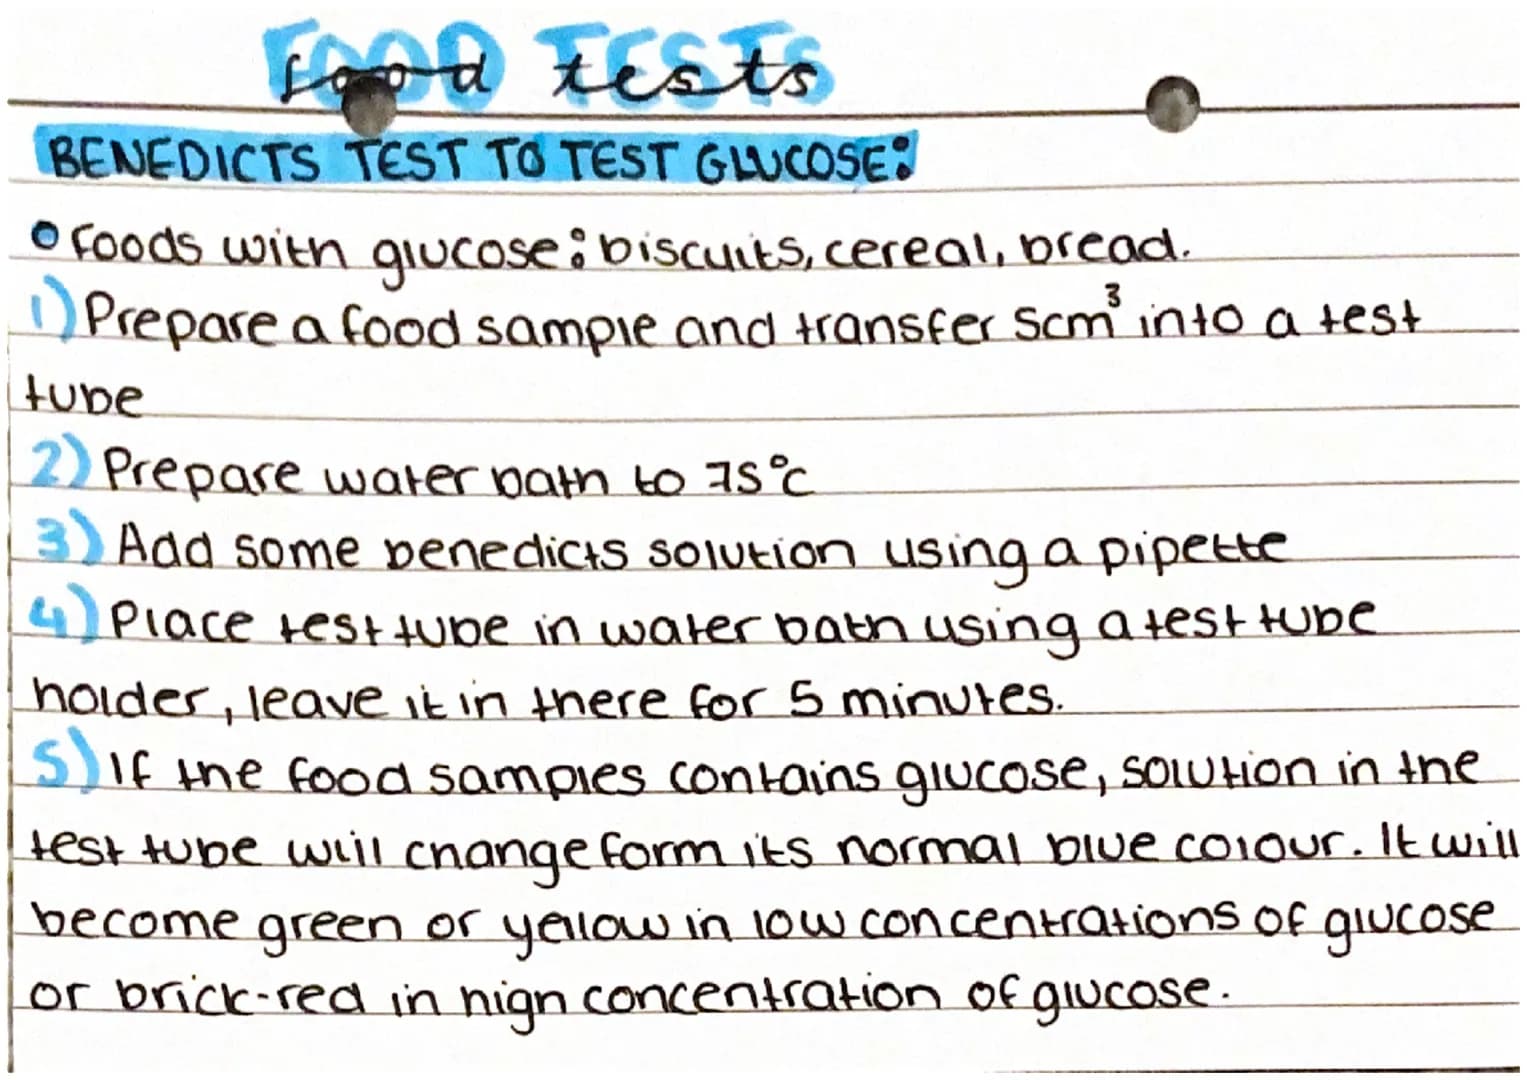 FOOD TESTS
food tests
BENEDICTS TEST TO TEST GLUCOSE:
Foods with glucose: biscuits, cereal, bread.
1) Prepare a food sample and transfer 5cm³ into a test
tube
2) Prepare water bath to 75°c
3) Add some benedicts solution using a pipette
4) Place test tube in water bath using a test tube
holder, leave it in there for 5 minutes.
5) If the food samples contains glucose, solution in the
test tube will change form its normal blue colour. It will
become green or yellow in low concentrations of glucose
or brick-red in high concentration of glucose.